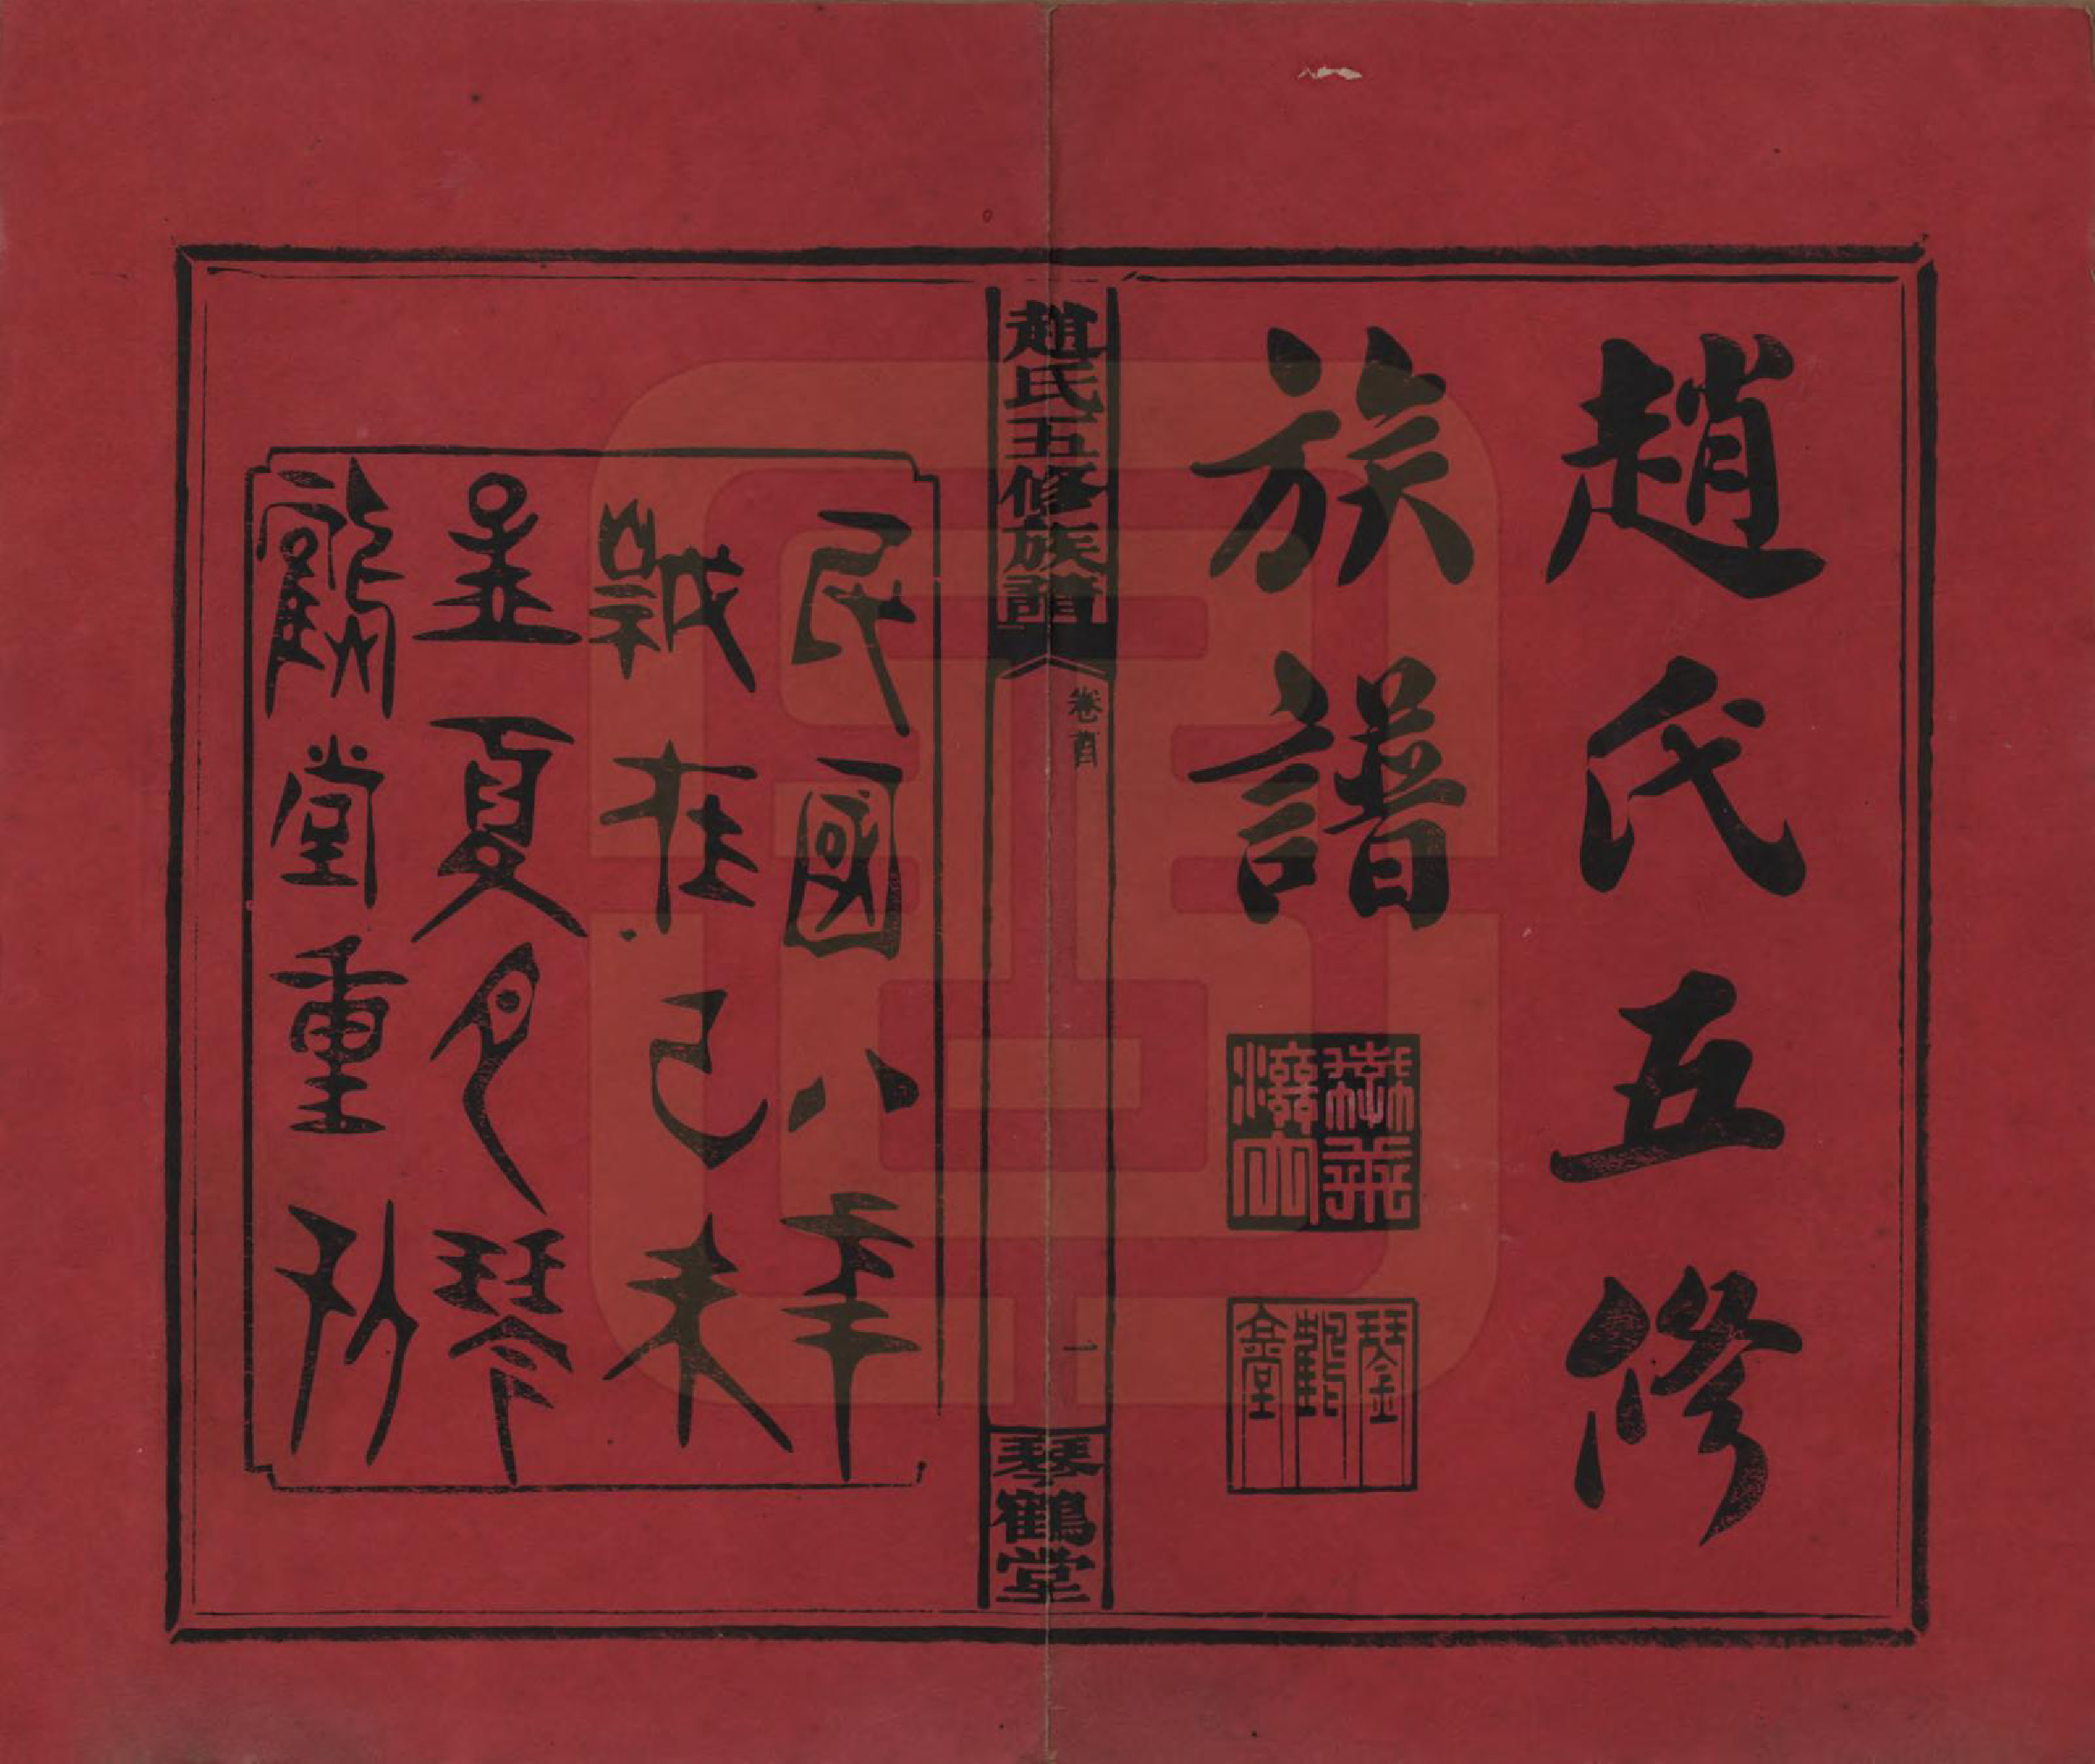 趙氏五修
族譜
琴鶴堂
趙氏五修族譜
卷首
一
琴鶴堂
民國八年
歲在己未
孟夏月琴
鶴堂重刊